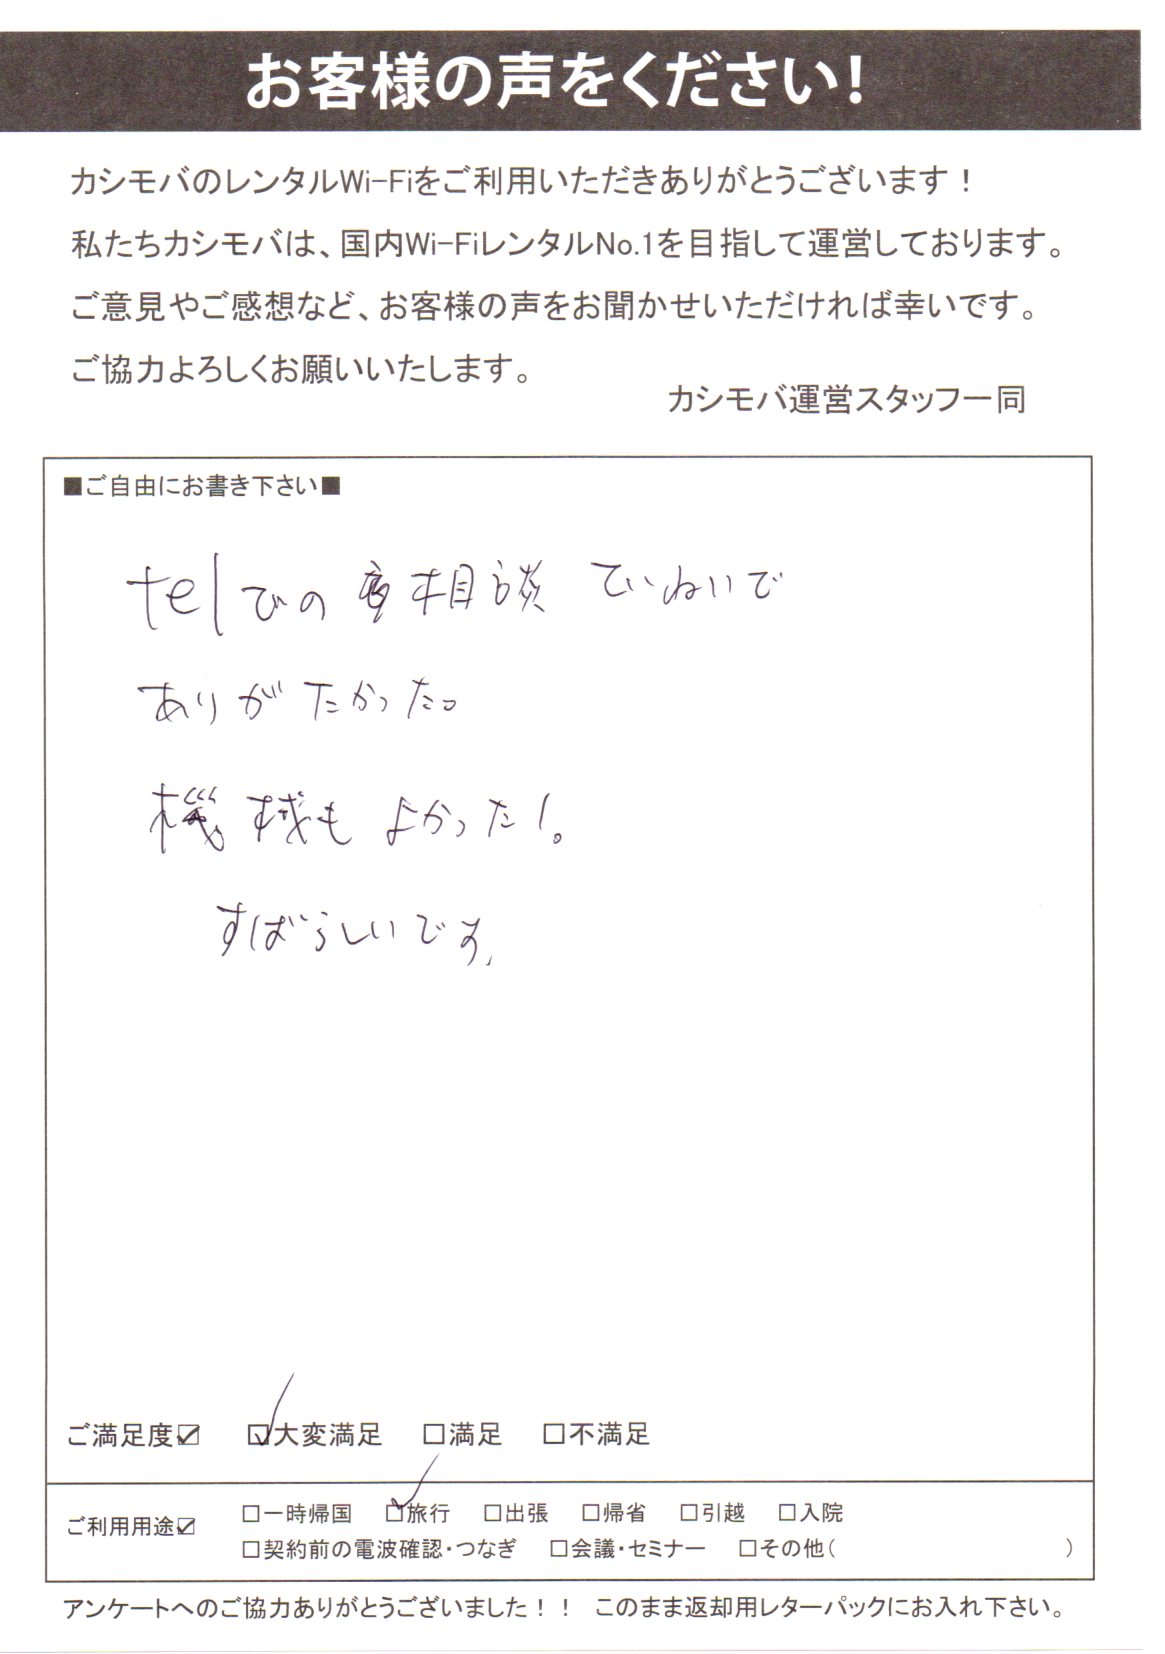 お客様の声をください!
カシモバのレンタルWi-Fiをご利用いただきありがとうございます!
私たちカシモバは、国内Wi-FiレンタルNo.1を目指して運営しております。
ご意見やご感想など、お客様の声をお聞かせいただければ幸いです。
ご協力よろしくお願いいたします。
カシモバ運営スタッフ一同
■ご自由にお書き下さい■
telでの 相談 ていねいで
ありがたかった。
機械も よかった!。
すばらしいです、
ご満足度☑ ☑大変満足 □満足 □不満足
ご利用用途☑ □一時帰国 ☑旅行 □出張 □帰省 □引越 □入院
□契約前の電波確認・つなぎ □会議・セミナー □その他( )
アンケートへのご協力ありがとうございました!! このまま返却用レターパックにお入れ下さい。